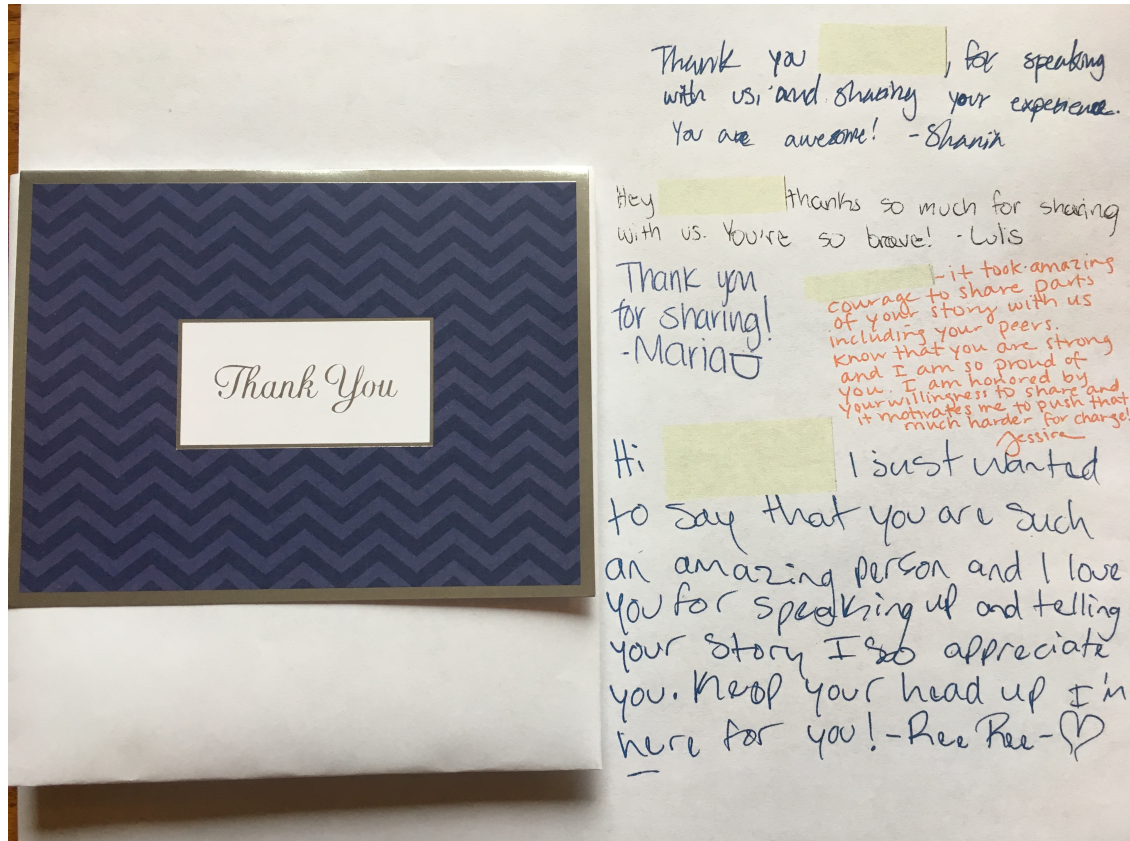 Thank You
Thank you , for speaking
with us, and sharing your experience.
You are awesome! -Shanin
Hey thanks so much for sharing
with us. You're so brave! -Luis
Thank you
for sharing!
-Maria
-it took amazing
courage to share parts
of your story with us
including your peers.
Know that you are strong
and I am so proud of
you. I am honored by
your willingness to share and
it motivates me to push that
much harder for change!
Jessica
Hi I just wanted
to say that you are such
an amazing person and I love
you for speaking up and telling
your story I so appreciate
you. Keep your head up I'm
here for you! -Ree Ree-